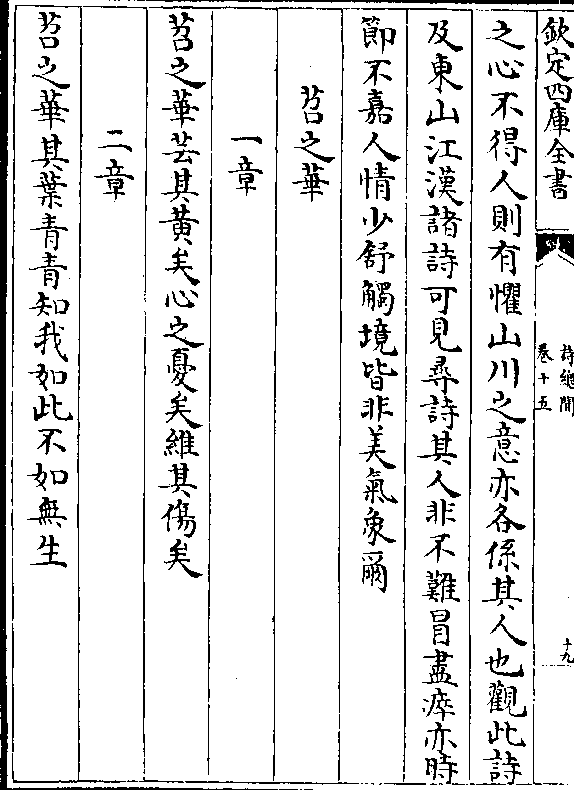 欽定四庫全書
詩總聞
卷十五
十九
之心不得人則有懼山川之意亦各係其人也觀此詩
及東山江漢諸詩可見尋詩其人非不難冒盡瘁亦時
節不嘉人情少舒觸境皆非美氣象爾
苕之華
一章
苕之華芸其黃矣心之憂矣維其傷矣
二章
苕之華其葉青青知我如此不如無生